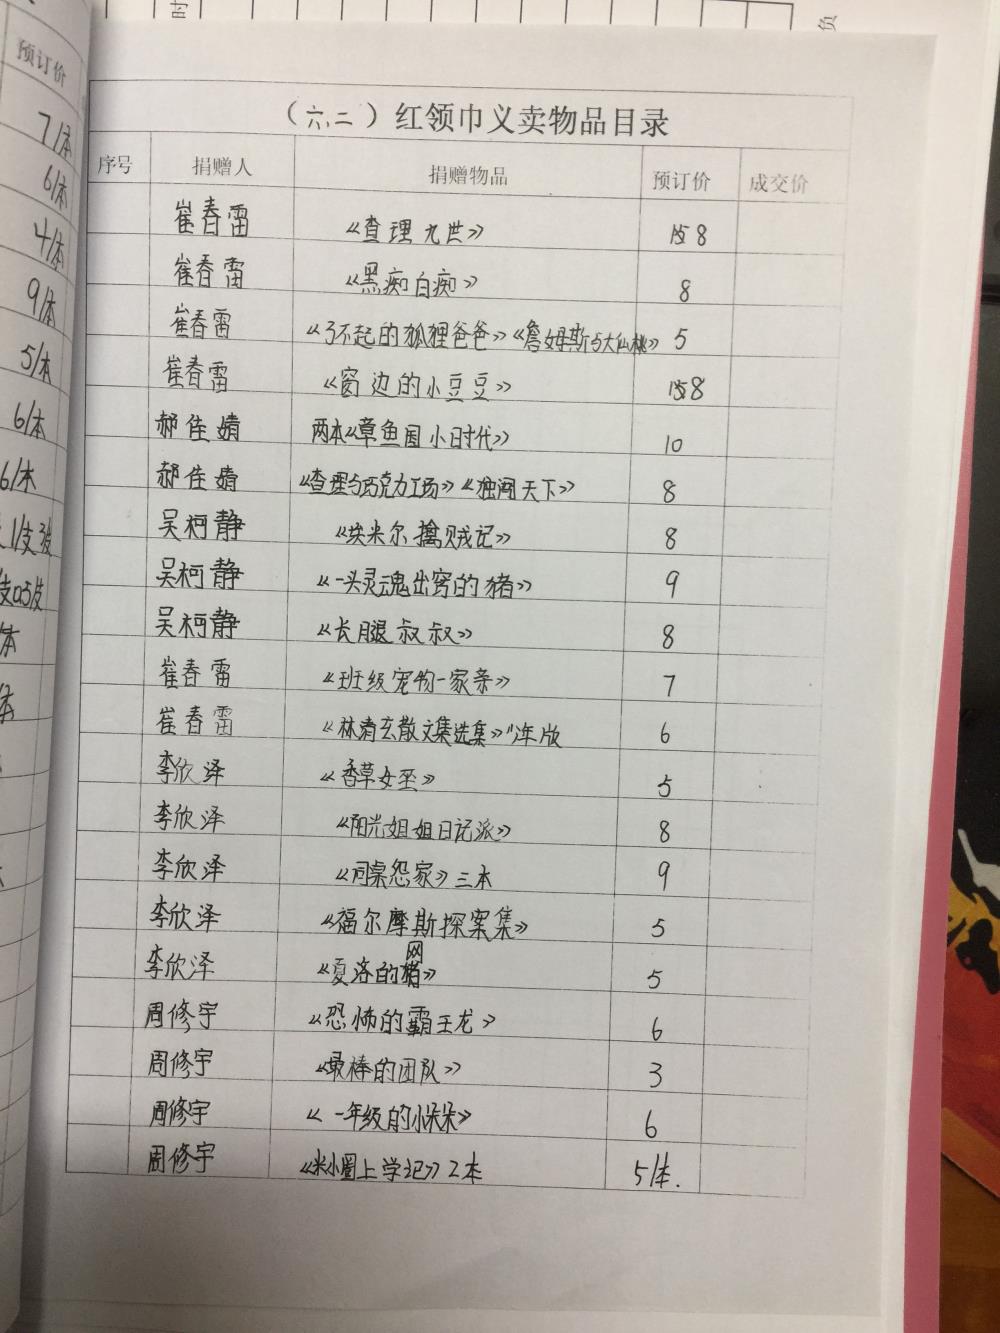 时
负
预订价
7/本
6/本
4/本
9/本
5/本
6/本
6/本
（六.二）红领巾义卖物品目录
序号 捐赠人 捐赠物品 预订价 成交价
崔春雷 《查理九世》 8
崔春雷 《黑痴白痴》 8
崔春雷 《了不起的狐狸爸爸》《詹姆斯与大仙桃》 5
崔春雷 《窗边的小豆豆》 8
郝佳婧 两本《章鱼国小时代》 10
郝佳婧 《查理与巧克力工场》《独闯天下》 8
吴柯静 《埃米尔擒贼记》 8
吴柯静 《一头灵魂出窍的猪》 9
吴柯静 《长腿叔叔》 8
崔春雷 《班级宠物一家亲》 7
崔春雷 《林清玄散文集选集》少年版 6
李欣泽 《香草女巫》 5
李欣泽 《阳光姐姐日记派》 8
李欣泽 《同桌怨家》三本 9
李欣泽 《福尔摩斯探案集》 5
李欣泽 《夏洛的网》 5
周修宇 《恐怖的霸王龙》 6
周修宇 《最棒的团队》 3
周修宇 《一年级的小朵朵》 6
周修宇 《米小圈上学记》2本 5/本.